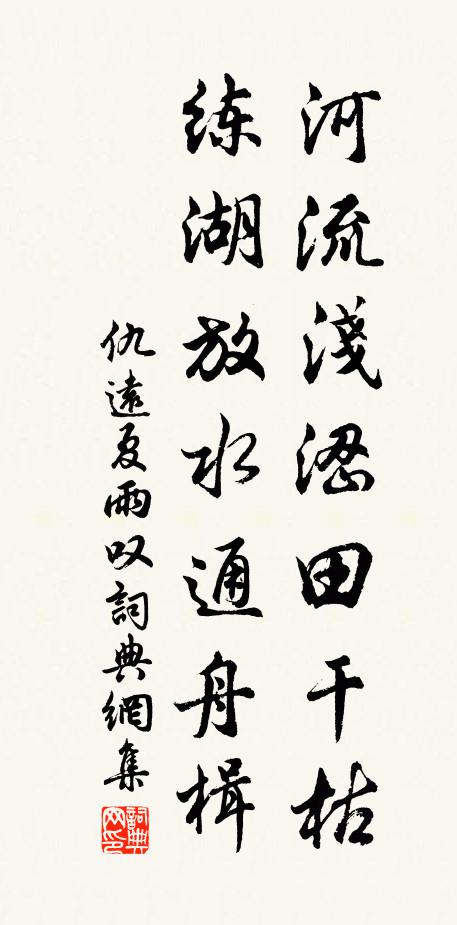 河流淺涩田干枯
练湖放水通舟楫
仇遠夏雨叹詞典網集
詞典网印